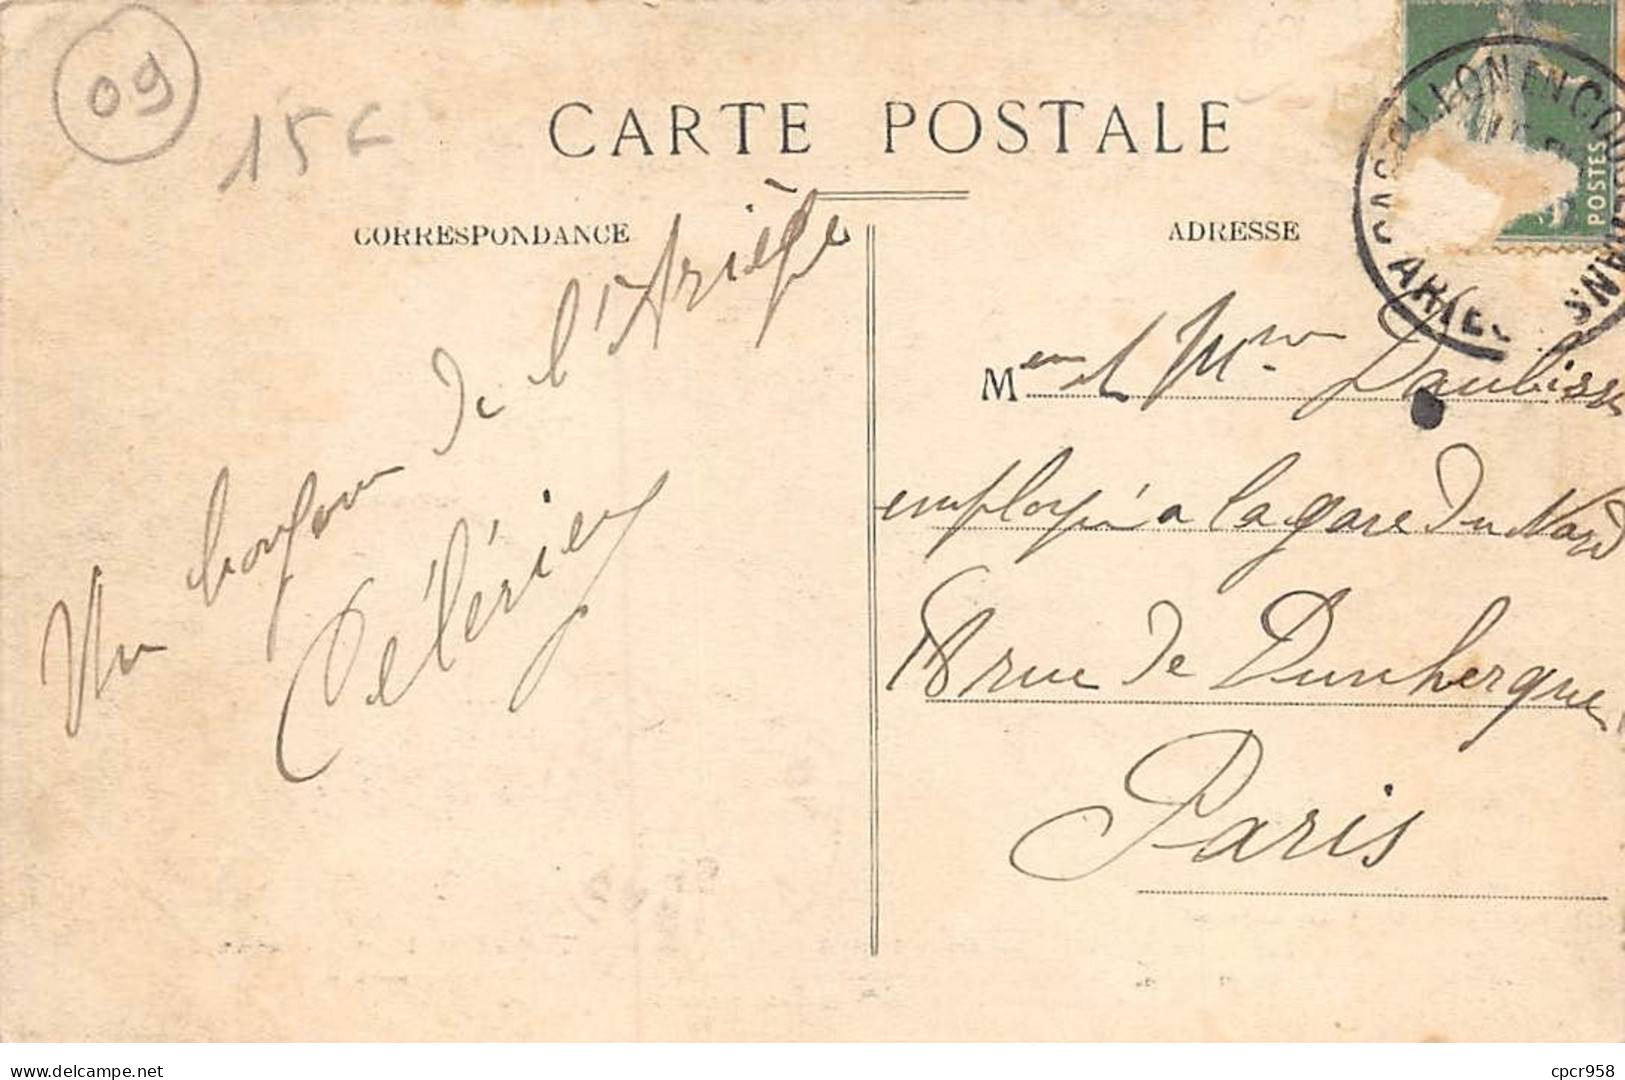 09
15€
CARTE POSTALE
CORRESPONDANCE
ADRESSE
POSTES
CASTILLON EN COUSERANS
ARIEGE
Un bonjour de l'Ariège
Célérier
M et Mme Daubisse
employé a la gare du Nord
18 rue de Dunkerque
Paris
cpcr958